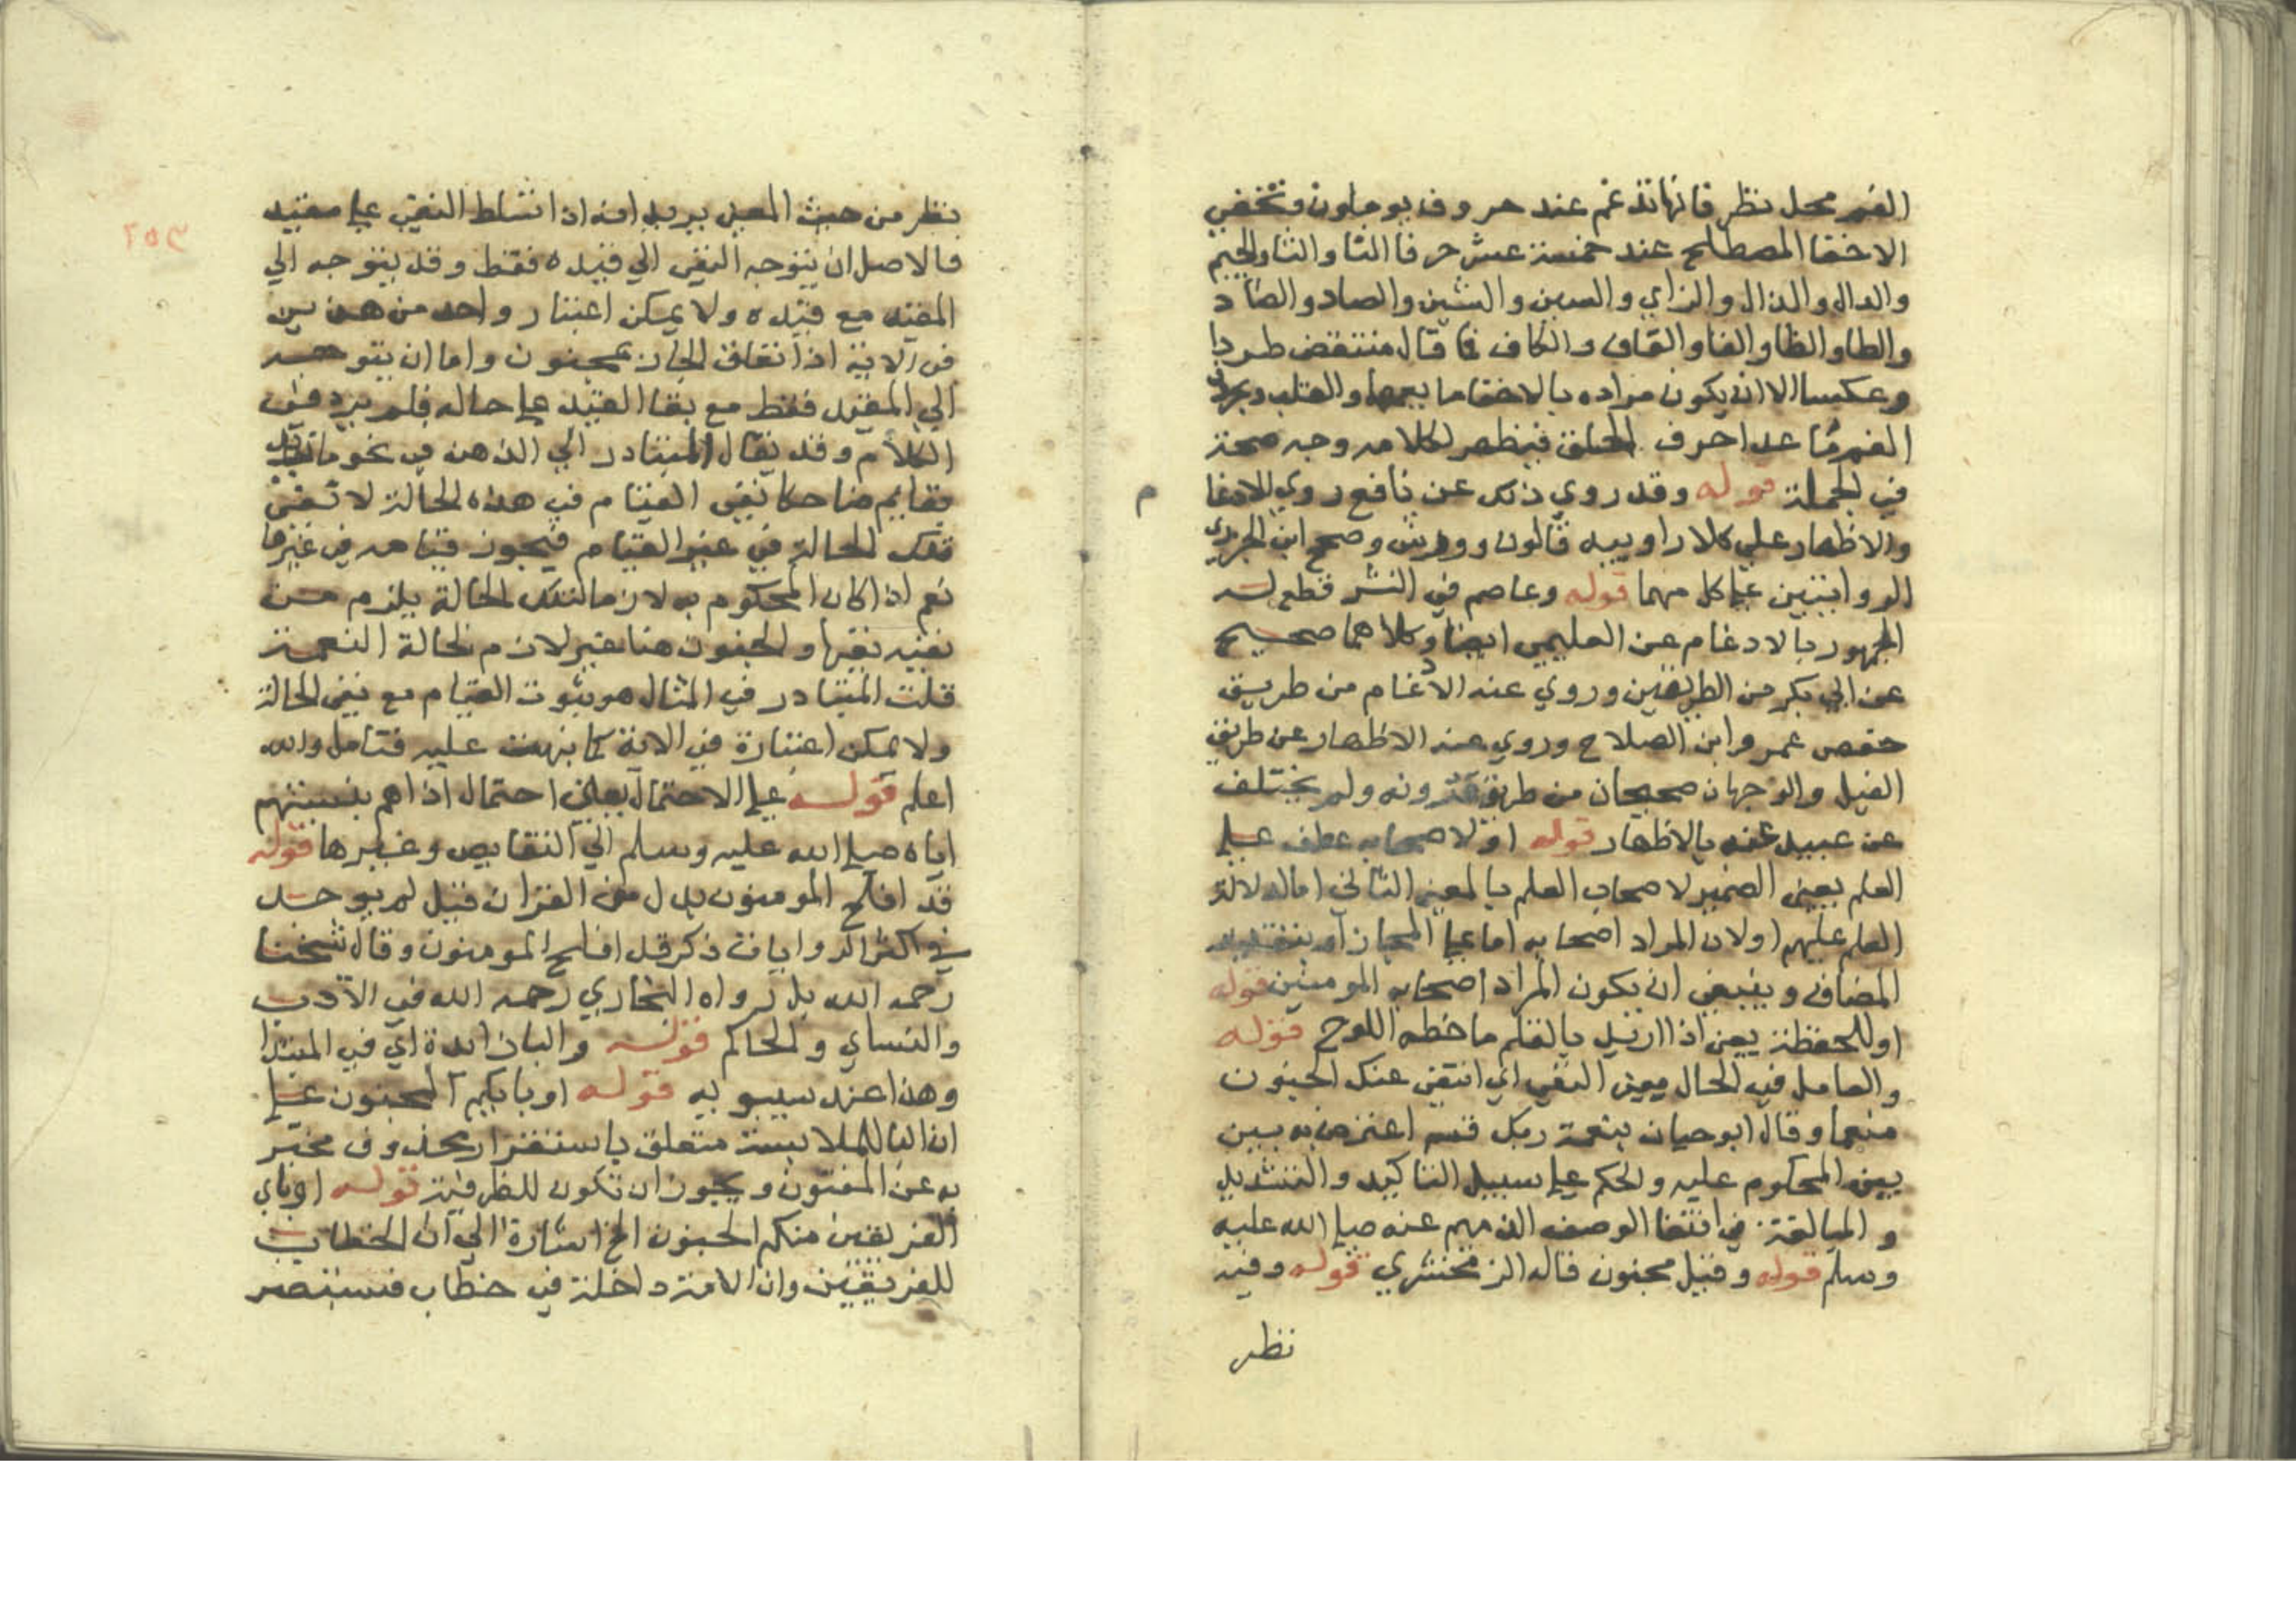 الفم محل نظر فانها تدغم عند حروف يوملون وتخفي
الاخفا المصطلح عند خمسة عشر حرفا التا والثا والجيم
والدال والذال والزاي والسين والشين والصاد والضاد
والطا والظا والفا والقاف والكاف فما قال منتقض طردا
وعكسا الا ان يكون مراده بالاخفا ما يعمها والقلب
الفم ما عدا حروف الحلق فيظهر لكلامه وجه صحة
في الجملة قوله وقد روي ذلك عن نافع روي الادغا م
والاظهار علي كلا راوييه قالون وورش وصحح ابن الجزري
الروايتين عن كل منهما قوله وعاصم في النشر قطع له
الجمهور بالادغام عن العليمي ايضا وكلاهما صحيح
عن ابي بكر من الطريقين وروي عنه الادغام من طريق
حفص عمرو ابن الصلاح وروي عنه الاظهار عن طريق
الفيل والوجهان صحيحان من طريق ولم يختلف
عن عبيد عنه بالاظهار قوله او لاصحابه عطف علي
العلم يعني الضمير لاصحاب العلم بالمعني الثاني اما لدلالة
العلم عليهم او لان المراد اصحابه اما علي المجاز او بتقدير
المضاف وينبغي ان يكون المراد اصحابه المومنين قوله
او للحفظة يعني اذا اريد بالقلم ما خطه اللوح قوله
والعامل في الحال معني النفي اي انتفي عنك الجنون
منعما وقال ابو حيان بنعمة ربك قسم اعترض به بين
بين المحكوم عليه والحكم علي سبيل التاكيد والتشديد
والمبالغة في انتفا الوصف الذميم عنه صلي الله عليه
وسلم قوله وقيل مجنون قاله الزمخشري قوله وفيه
نظر
٢٥٣
نظر من حيث المعني يريد انه اذا تسلط النفي علي مقيد
فالاصل ان يتوجه النفي الي قيده فقط وقد يتوجه الي
المقيد مع قيده ولا يمكن اعتبار واحد من هذين
في الاية اذ انفاق الجار بمجنون واما ان يتوجه
الي المقيد فقط مع بقا القيد علي حاله فلم يرد في
الكلام وقد يقال المتبادر الي الذهن في نحو ما زيد
بقايم ضاحكا نفي القيام في هذه الحالة لا نفي
تلك الحالة في غير القيام فيجوز قيامه في غيرها
نعم اذا كان المحكوم به لازما لتلك الحالة يلزم من
نفيه نفيها والجنون هنا غير لازم لحالة النعمة
قلت المتبادر في المثال هو ثبوت القيام مع نفي الحالة
ولا يمكن اعتباره في الاية كما نبهت عليه فتامل والله
اعلم قوله علي الاحتمال يعني احتمال اذاهم بنسبتهم
اياه صلي الله عليه وسلم الي النقايص وغيرها قوله
قد افلح المومنون بدل من القران قيل لم يوجد
في اكثر الروايات ذكر قد افلح المومنون وقال شيخنا
رحمه الله بل رواه البخاري رحمه الله في الادب
والنساي والحاكم قوله والبا زايدة اي في المبتدا
وهذا عند سيبويه قوله او بايكم المجنون علي
ان البا للملابسة متعلق باستقرار محذوف مخبر
به عن المفتون ويجوز ان تكون للظرفية قوله او باي
الفريقين منكم الجنون الخ اشارة الي ان الخطاب
للفريقين وان الامة داخلة في خطاب فستبصر